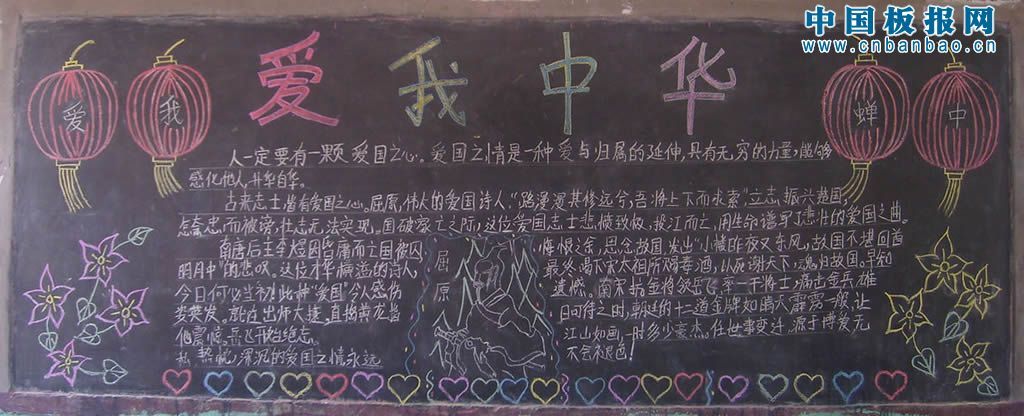 中国板报网
www.cnbanbao.cn
爱我中华
爱
我
蝉
中
人一定要有一颗爱国之心。爱国之情是一种爱与归属的延伸,具有无穷的力量,能够
感化他人,升华自华。
古来志士皆有爱国之心。屈原,伟大的爱国诗人,"路漫漫其修远兮,吾将上下而求索"立志振兴楚国,
怎奈忠而被谤,壮志无法实现。国破家亡之际,这位爱国志士悲愤致极,投江而亡,用生命谱写了悲壮的爱国之曲。
南唐后主李煜因昏庸而亡国被囚
明月中"的悲叹。这位才华横溢的诗人,
今日何必当初!此种"爱国"令人感伤
屈原
悔恨之余,思念故国发出"小楼昨夜又东风,故国不堪回首
最终喝下宋太祖所赐毒酒,以死谢天下,魂归故国。早知
遗憾。南宋抗金将领岳飞率一干将士,痛击金兵,雄
日可待之时,朝廷的十二道金牌如晴天霹雳一般,让
江山如画,一时多少豪杰。任世事变迁,源于博爱无
不会褪色!
他震惊,岳飞
深沉的爱国之情永远